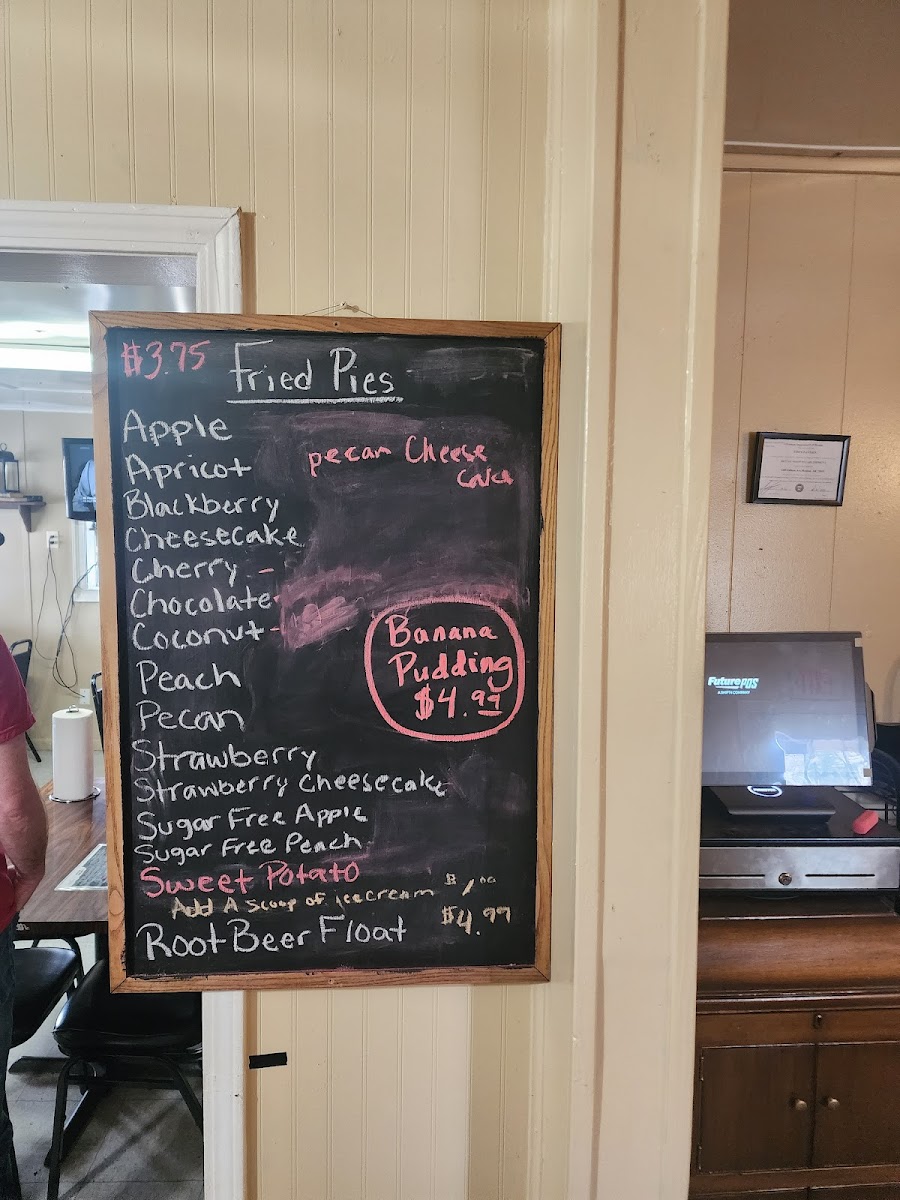 $3.75 Fried Pies
Apple
Apricot
Blackberry
Cheesecake
Cherry
Chocolate
Coconut
Peach
Pecan
Strawberry
Strawberry Cheesecake
Sugar Free Apple
Sugar Free Peach
Sweet Potato
Add A Scoop of icecream $1.00
Root Beer Float $4.99
pecan Cheese
cake
Banana
Pudding
$4.99
FuturePOS